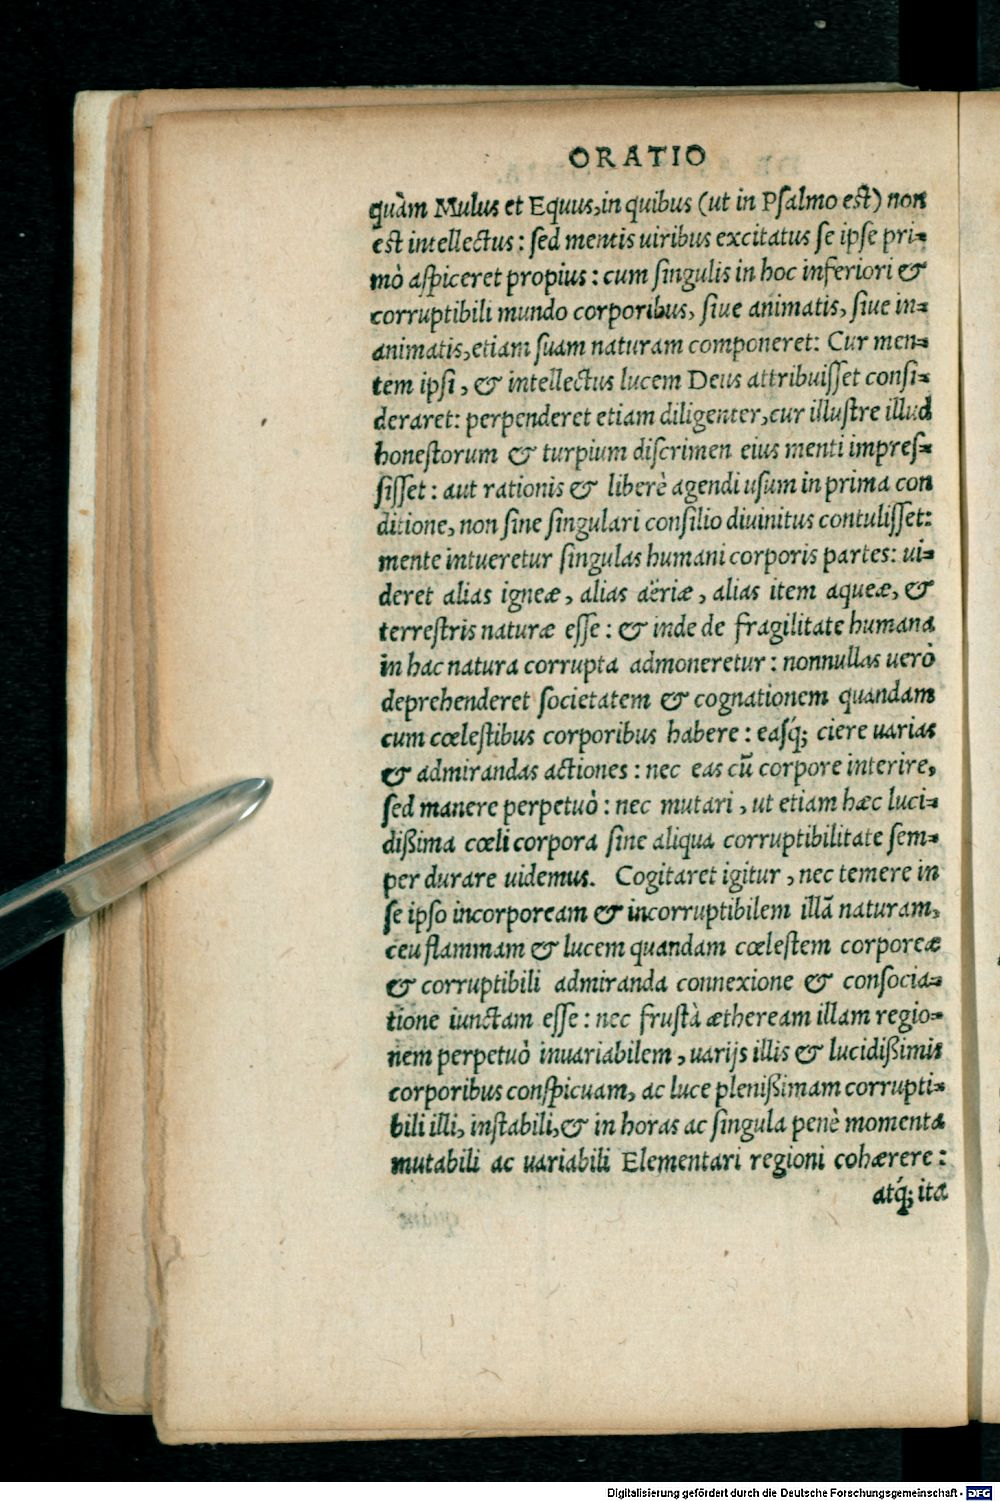 ORATIO
quàm Mulus et Equus, in quibus (ut in Psalmo est) non
est intellectus: sed mentis uiribus excitatus se ipse pri-
mò aspiceret propius: cum singulis in hoc inferiori &
corruptibili mundo corporibus, siue animatis, siue in-
animatis, etiam suam naturam componeret: Cur men-
tem ipsi, & intellectus lucem Deus attribuisset consi-
deraret: perpenderet etiam diligenter, cur illustre illud
honestorum & turpium discrimen eius menti impres-
sisset: aut rationis & liberè agendi usum in prima con
ditione, non sine singulari consilio diuinitus contulisset:
mente intueretur singulas humani corporis partes: ui-
deret alias igneæ, alias aëriæ, alias item aqueæ, &
terrestris naturæ esse: & inde de fragilitate humana
in hac natura corrupta admoneretur: nonnullas uerò
deprehenderet societatem & cognationem quandam
cum cœlestibus corporibus habere: easq́; ciere uarias
& admirandas actiones: nec eas cũ corpore interire,
sed manere perpetuò: nec mutari, ut etiam hæc luci-
dißima cœli corpora sine aliqua corruptibilitate sem-
per durare uidemus. Cogitaret igitur, nec temere in
se ipso incorpoream & incorruptibilem illã naturam,
ceu flammam & lucem quandam cœlestem corporeæ
& corruptibili admiranda connexione & consocia-
tione iunctam esse: nec frustà ætheream illam regio-
nem perpetuò inuariabilem, uarijs illis & lucidißimis
corporibus conspicuam, ac luce plenißimam corrupti-
bili illi, instabili, & in horas ac singula penè momenta
mutabili ac uariabili Elementari regioni cohærere:
atq́; ita
Digitalisierung gefördert durch die Deutsche Forschungsgemeinschaft - DFG